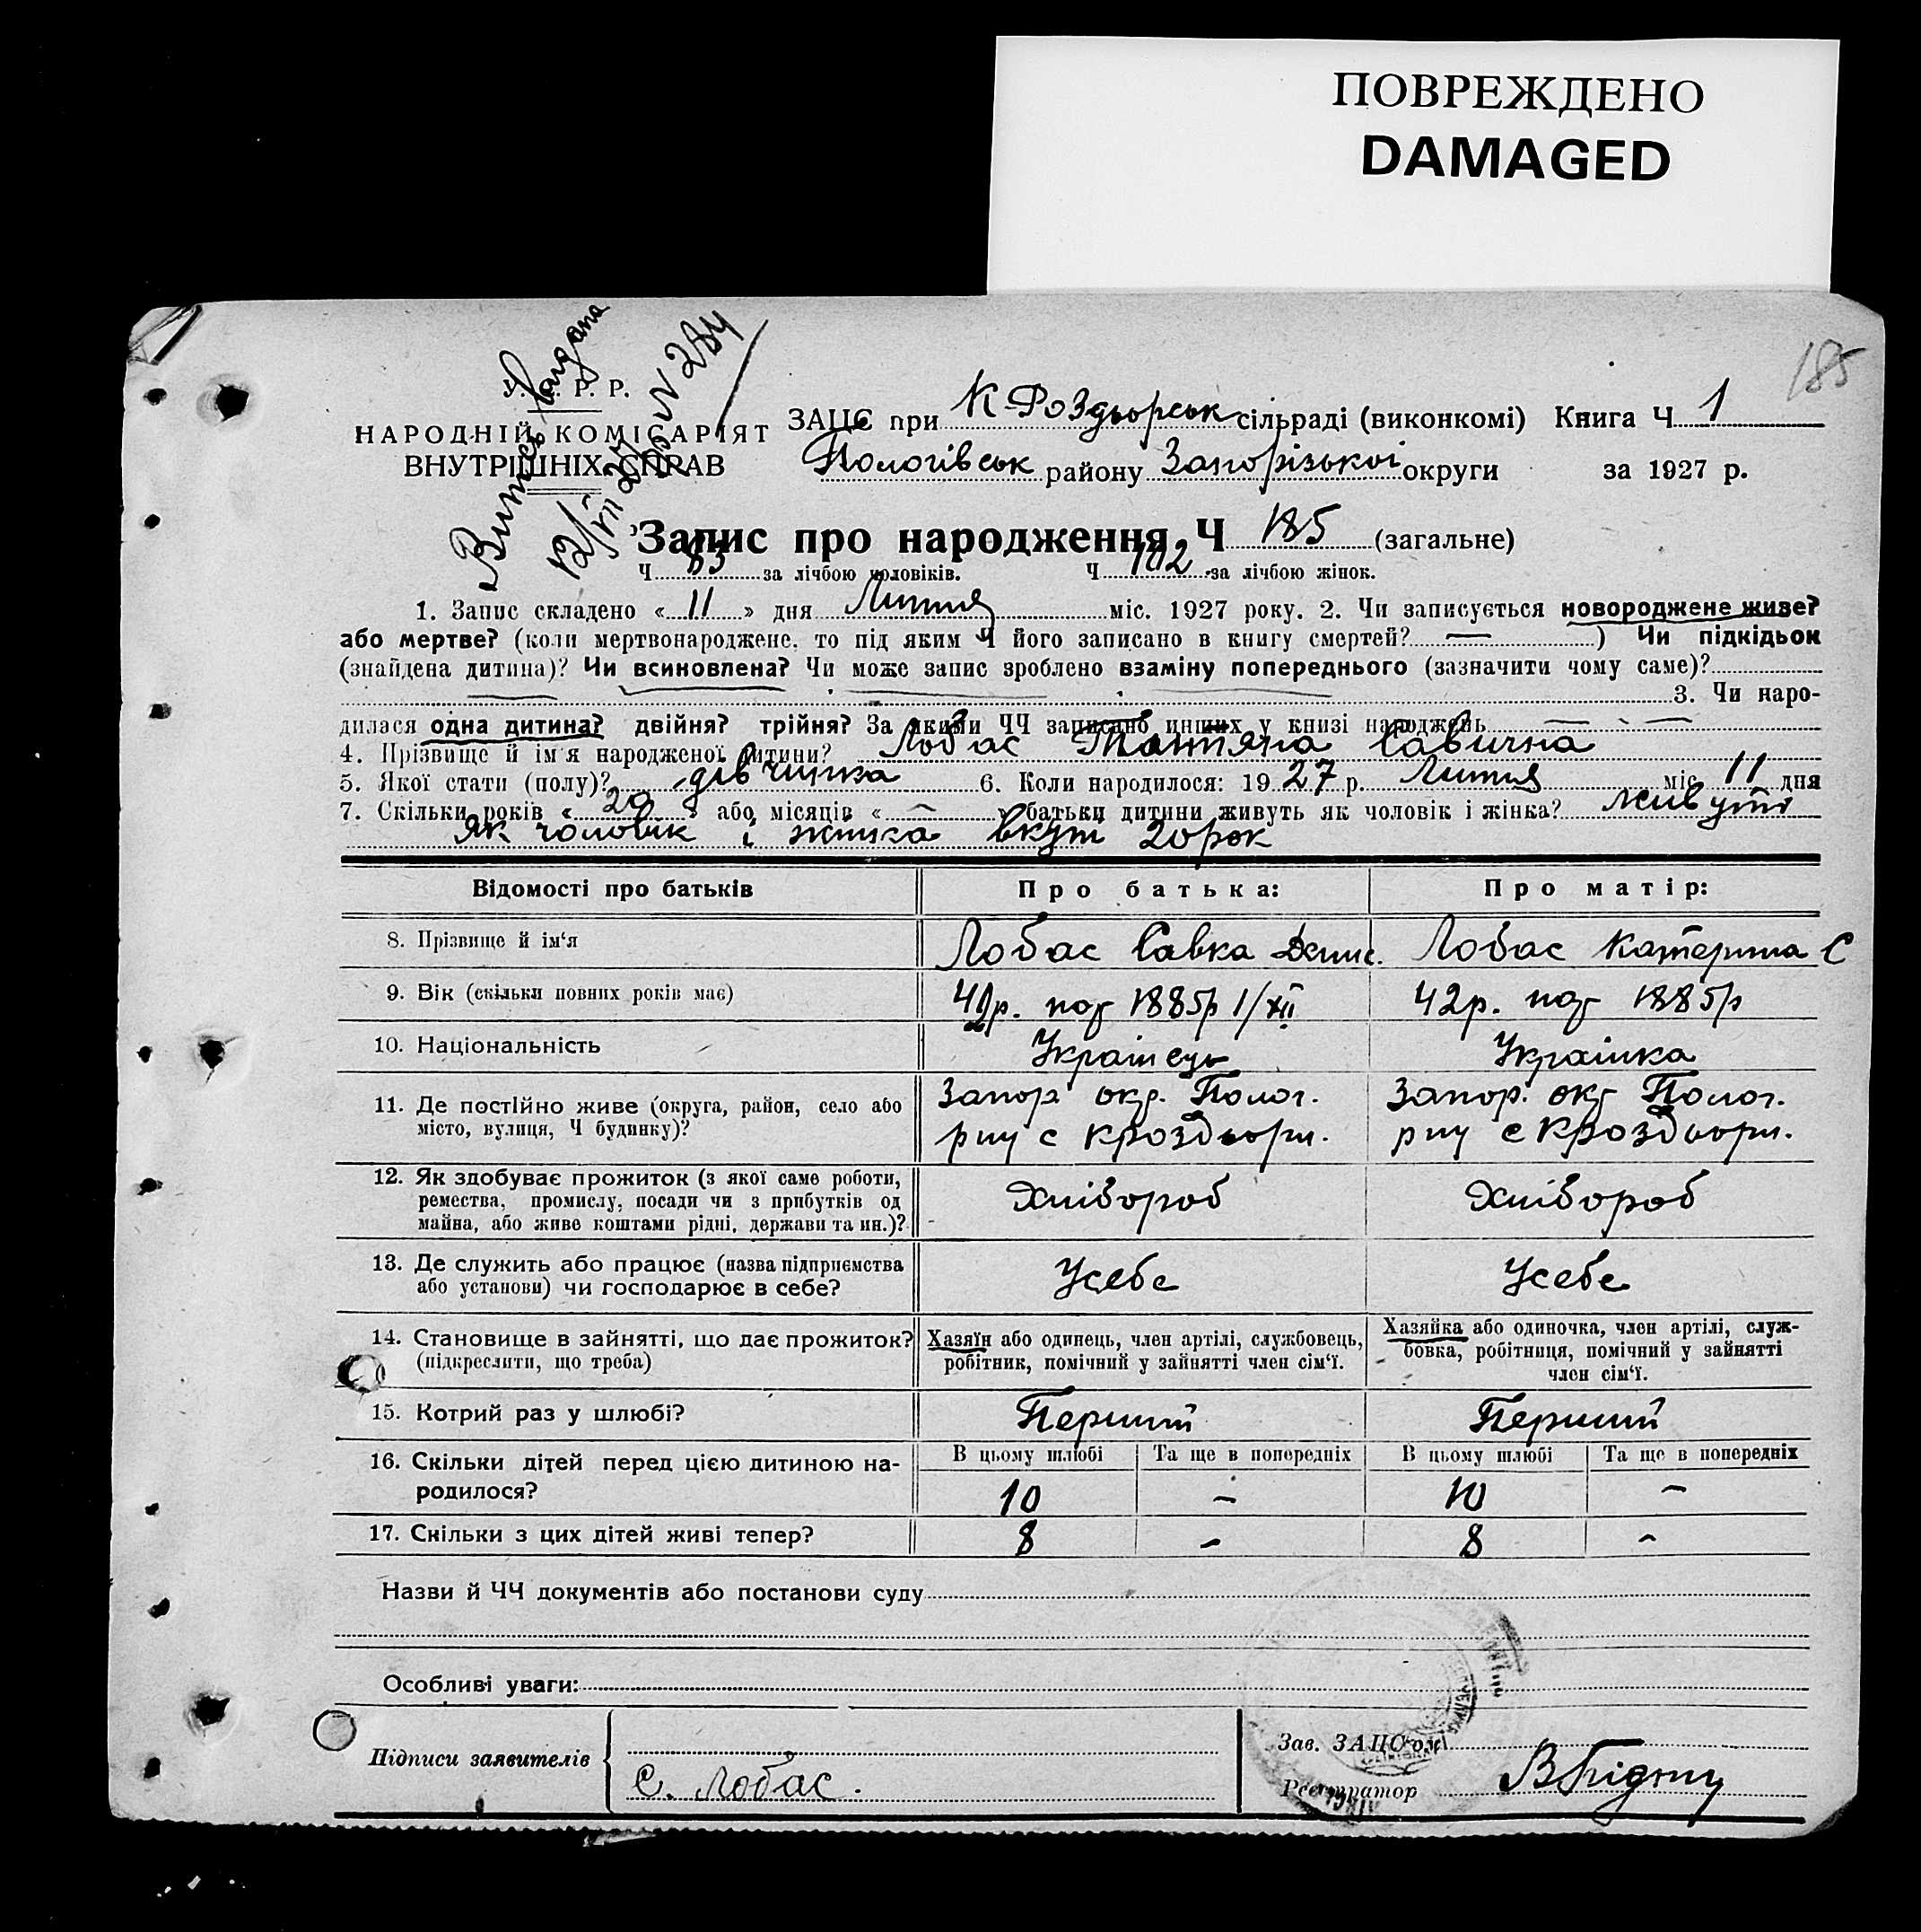 ПОВРЕЖДЕНО
DAMAGED
185
У. Р. Р.
НАРОДНІЙ КОМІСАРІЯТ
ВНУТРІШНІХ СПРАВ
12/VII 27
N 284
ЗАЦС при К-Роздьорськ сільраді (виконкомі) Книга Ч 1
Пологівськ району Запорізької округи за 1927 р.
Запис про народження Ч 185 (загальне)
Ч 83 за лічбою чоловіків. Ч 102 за лічбою жінок.
1. Запис складено « 11 » дня Липня міс. 1927 року. 2. Чи записується новороджене живе?
або мертве? (коли мертвонароджене, то під яким Ч його записано в книгу смертей? — ) Чи підкідьок
(знайдена дитина)? Чи всиновлена? Чи може запис зроблено взаміну попереднього (зазначити чому саме)?
3. Чи наро-
дилася одна дитина? двійня? трійня? За якими ЧЧ записано инших у книзі народжень — —
4. Прізвище й ім'я народженої дитини? Лобас Тантяна Савична
5. Якої стати (полу)? дівчинка 6. Коли народилося: 1927 р. Липня міс. 11 дня
7. Скільки років « 20 » або місяців « — » батьки дитини живуть як чоловік і жінка? живуть
як чоловік і жінка вкупі 20 рок
Відомості про батьків Про батька: Про матір:
8. Прізвище й ім'я Лобас Савка Денис. Лобас Катерина С
9. Вік (скільки повних років має) 42р. 1885р 1/XII 42р. 1885р
10. Національність Українець Українка
11. Де постійно живе (округа, район, село або Запор окр. Полог. Запор. окр Полог.
місто, вулиця, Ч будинку)? рну с Кроздьори. рну с Кроздьори.
12. Як здобуває прожиток (з якої саме роботи,
ремества, промислу, посади чи з прибутків од Хлібороб Хлібороб
майна, або живе коштами рідні, держави та ин.)?
13. Де служить або працює (назва підприємства
або установи) чи господарює в себе? Усебе Усебе
14. Становище в зайнятті, що дає прожиток? Хазяїн або одинець, член артілі, службовець, Хазяйка або одиночка, член артілі, служ-
(підкреслити, що треба) робітник, помічний у зайнятті член сім'ї. бовка, робітниця, помічний у зайнятті
член сім'ї.
15. Котрий раз у шлюбі? Перший Перший
16. Скільки дітей перед цією дитиною на- В цьому шлюбі Та ще в попередніх В цьому шлюбі Та ще в попередніх
родилося? 10 – 10 –
17. Скільки з цих дітей живі тепер? 8 – 8 –
Назви й ЧЧ документів або постанови суду
Особливі уваги:
Підписи заявителів С. Лобас.
Зав. ЗАЦСом
Реєстратор